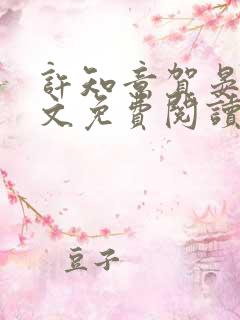 許知意賀晃
文免費閱讀
豆子